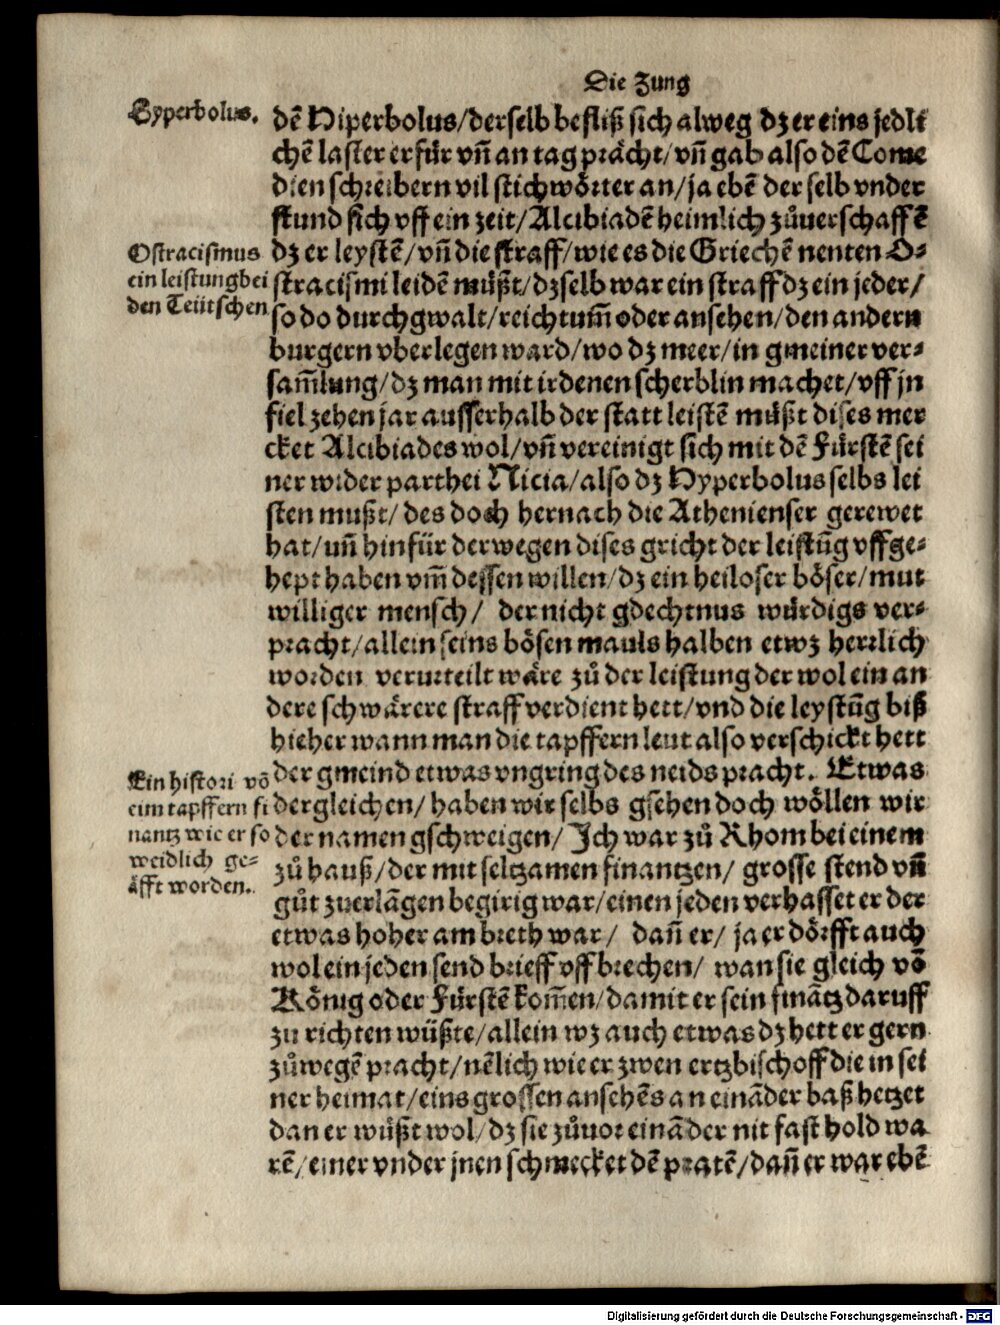 Die Zung
Hyperbolus.
dē Hiperbolus/derselb befliß sich alweg dz er eins jedli
chē laster erfür vñ an tag prächt/vñ gab also dē Come
dien schreibern vil stichwörter an/ja ebē der selb vnder
stund sich vff ein zeit/Alcibiadē heimlich zůuerschaffē
Ostracismus
ein leistung bei
den Teütschen
dz er leystē/vñ die straff/wie es die Griechē nenten O⸗
stracismi leidē müßt/dzselb war ein straff dz ein jeder/
so do durch gwalt/reichtum̃ oder ansehen/den andern
burgern vberlegen ward/wo dz meer/in gmeiner ver⸗
sam̃lung/dz man mit irdenen scherblin machet/vff jn
fiel zehen jar ausserhalb der statt leistē müßt dises mer
cket Alcibiades wol/vñ vereinigt sich mit dē Fürstē sei
ner wider parthei Nicia/also dz Hyperbolus selbs lei
sten mußt/des doch hernach die Athenienser gerewet
hat/vñ hinfür derwegen dises gricht der leistūg vffge⸗
hept haben vm̃ dessen willen/dz ein heiloser böser/mut
williger mensch/ der nicht gdechtnus würdigs ver⸗
pracht/allein seins bösen mauls halben etwz herrlich
worden verurteilt wäre zů der leistung der wol ein an
dere schwärere straff verdient hett/vnd die leystūg biß
hieher wann man die tapffern leut also verschickt hett
Ein histori vō
eim tapffern fi
nantz wie er so
weidlich ge⸗
äfft worden.
der gmeind etwas vngring des neids pracht. Etwas
dergleichen/ haben wir selbs gsehen doch wöllen wir
der namen gschweigen/ Ich war zů Rhom bei einem
zů hauß/der mit seltzamen finantzen/ grosse stend vñ
gůt zuerlāgen begirig war/einen jeden verhasset er der
etwas hoher am breth war/ dañ er/ ja er dörfft auch
wol ein jeden send brieff vff brechen/ wan sie gleich vō
König oder Fürstē kom̃en/damit er sein finātz daruff
zu richten wüßte/allein wz auch etwas dz hett er gern
zůwegē pracht/nēlich wie er zwen ertzbischoff die in sei
ner heimat/eins grossen anschēs an eināder baß hetzet
dan er wüßt wol/dz sie zůuor eināder nit fast hold wa
rē/einer vnder jnen schmecket dē pratē/dañ er war ebē
Digitalisierung gefördert durch die Deutsche Forschungsgemeinschaft - DFG